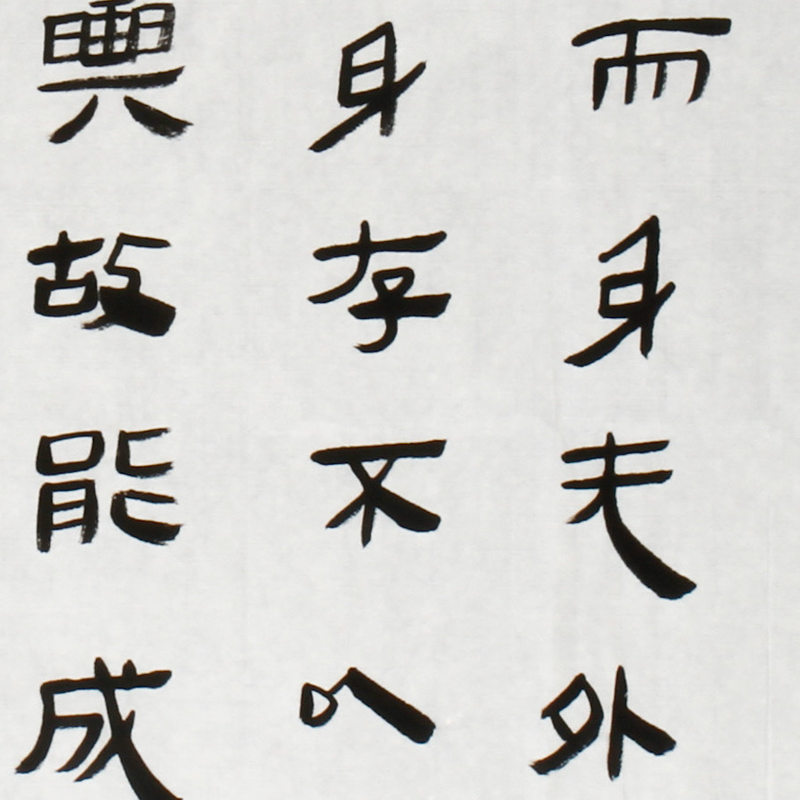 而身先外
身存不以
故能成